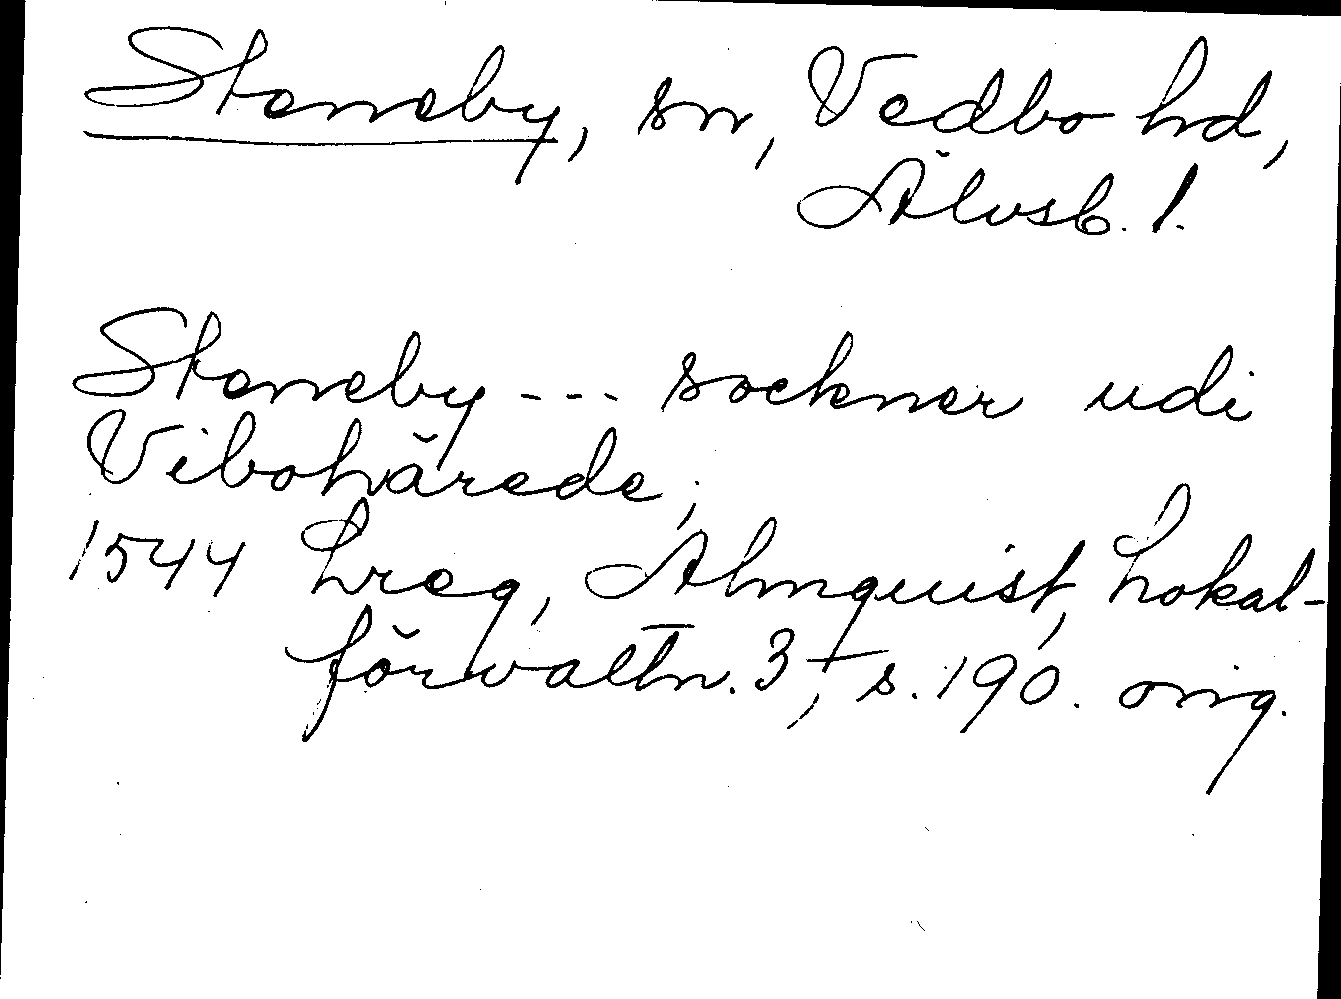 Steneby, sn, Vedbo hd,
Älvsb. l.
Steneby --- sockner udi
Vibohärede;
1544 Lreg, Almquist, Lokal-
förvaltn. 3, s. 190. orig.